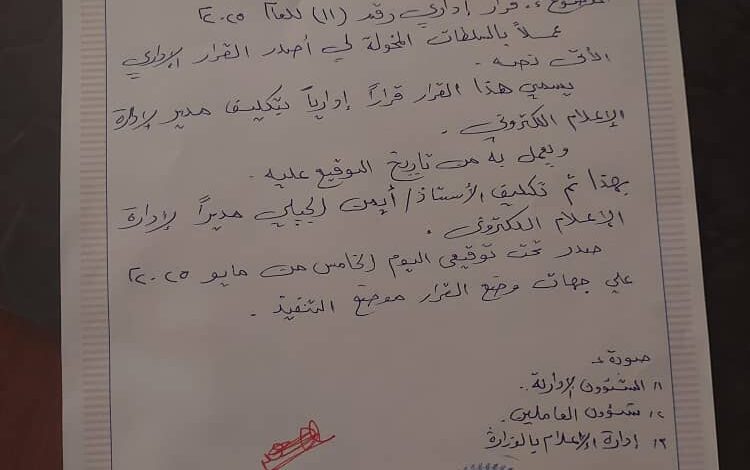 الموضوع: قرار إداري رقم (١١) للعام ٢٠٢٥م
عملاً بالسلطات المخولة لي أصدر القرار الإداري
الآتي نصه.
يسمي هذا القرار قراراً إدارياً بتكليف مدير إدارة
الإعلام الكتروني.
ويعمل به من تاريخ التوقيع عليه.
بهذا تم تكليف الأستاذ/ أيمن الجيلي مديراً لإدارة
الإعلام الالكتروني.
صدر تحت توقيعي اليوم الخامس من مايو ٢٠٢٥م
علي جهات وضع القرار موضع التنفيذ.
صورة :
١/ الشئوون الإدارية.
٢/ شؤون العاملين.
٣/ إدارة الإعلام بالوزارة